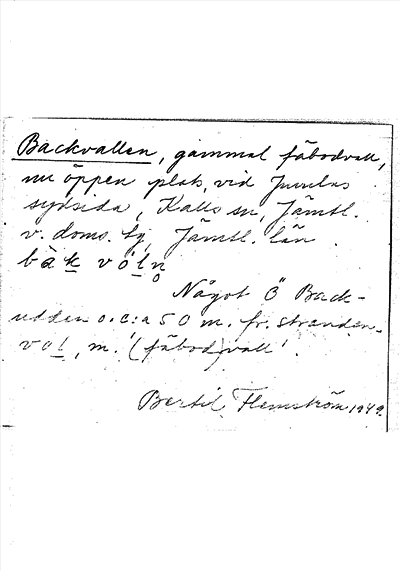 Backvallen, gammal fäbodvall,
nu öppen plats, vid Juvulns
sydsida, Kalls sn, Jämtl.
v. doms. tg, Jämtl. län
bàk vól̲n̥
Något Ö Back-
udden o. c:a 50 m. fr. stranden.
vol̲, m. '(fäbod)vall'.
Bertil Flemström 1949.